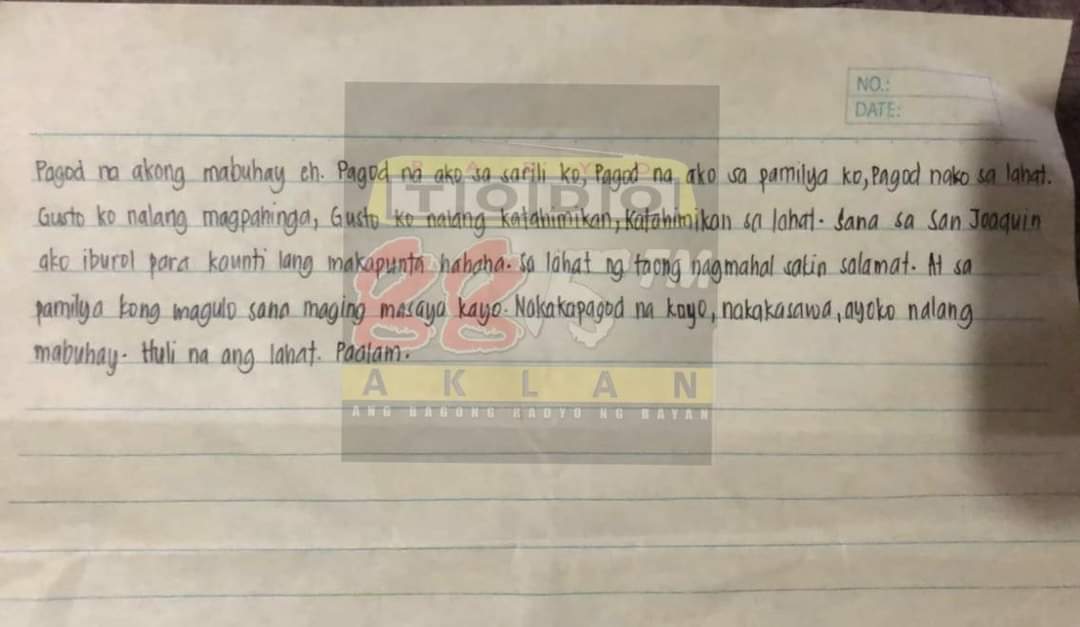 NO.:
DATE:
Pagod na akong mabuhay eh. Pagod na ako sa sarili ko, Pagod na ako sa pamilya ko, Pagod nako sa lahat.
Gusto ko nalang magpahinga, Gusto ko nalang katahimikan, Katahimikan sa lahat. Sana sa San Joaquin
ako iburol para kaunti lang makapunta hahaha. Sa lahat ng taong nagmahal sakin salamat. At sa
pamilya kong magulo sana maging masaya kayo. Nakakapagod na kayo, nakakasawa, ayoko nalang
mabuhay. Huli na ang lahat. Paalam.
RADYO
TODO
FM
AKLAN
ANG BAGONG RADYO NG BAYAN